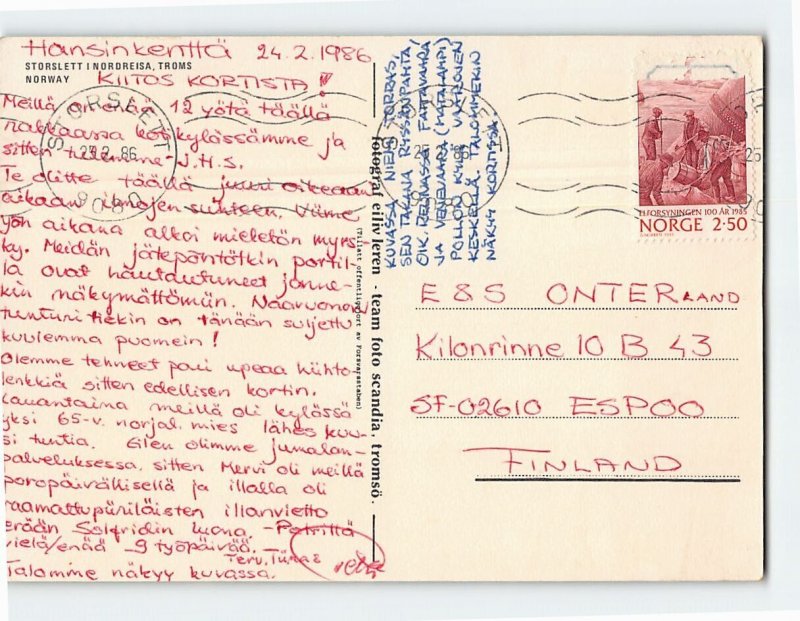 Hansinkenttä 24.2.1986
STORSLETT I NORDREISA, TROMS
NORWAY
KIITOS KORTISTA!
Meillä on enää 12 yötä täällä
rakkaassa kotikylässämme ja
sitten - J.H.S.
Te olitte täällä juuri oikeaan
aikaan ilmojen suhteen. Viime
yön aikana alkoi mieletön myrs-
ky. Meidän jätepöntötkin portil-
la ovat hautautuneet jonne-
kin näkymättömiin.
tunturitiekin on tänään suljettu
kuulemma puomein!
Olemme tehneet pari upeaa hiihto-
lenkkiä sitten edellisen kortin.
Lauantaina meillä oli kylässä
yksi 65-v. norjal. mies lähes kuu-
si tuntia. Eilen olimme jumalan-
palveluksessa, sitten Mervi oli meillä
poropäivällisellä ja illalla oli
raamattupiiriläisten illanvietto
erään Solfridin luona. -Petrillä
vielä/enää 9 työpäivää. -
Terv. Tiina &
Talomme näkyy kuvassa.
fotograf eiliv leren - team foto scandia, tromsø.
(Tillatt offentliggjort av Forsvarsstaben)
KUVASSA NIELS TORRAS,
SEN TAKANA
OIK. REUNASSA
JA (MATALAMPI)
POLLON KYLÄ
KESKELLÄ. TALOMMEKIN
NÄKYY KORTISSA
STORSLETT
25.2.86
9080
STORSLETT
ELFORSYNINGEN 100 ÅR 1985
NORGE 2·50
E & S ONTERLAND
Kilonrinne 10 B 43
SF-02610 ESPOO
FINLAND